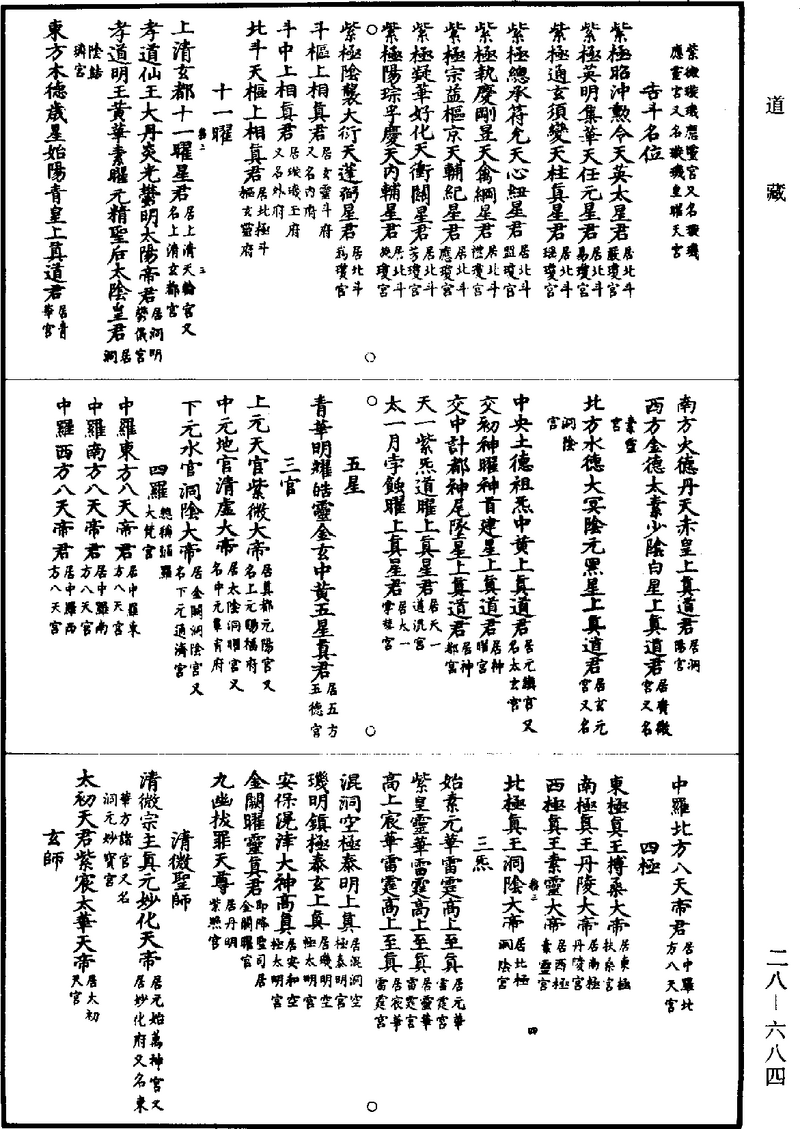 道藏
紫微璇璣應靈宮又名璇璣
應靈宮又名璇璣皇曜天宮
古斗名位
紫極昭沖勲令天英太星君居北斗嚴瓊宮
紫極英明集華天任元星君居北斗昜瓊宮
紫極通玄須變天柱真星君居北斗瑶瓊宮
紫極總承符允天心紐星君居北斗盟瓊宮
紫極執慶剛昱天禽綱星君居北斗禮瓊宮
紫極宗益樞京天輔紀星君居北斗應瓊宮
紫極凝華好化天衝關星君居北斗芳瓊宮
紫極陽琮孚慶天內輔星君居北斗瓊宮
紫極陰襲大衍天蓬弼星君居北斗瓊宮
斗樞上相真君居玄靈斗府又名內府
斗中上相真君居璇璣玉府又名外府
北斗天樞上相真君居北極斗樞玄靈府
十一曜
上清玄都十一曜星君居上清天輪宮又名上清玄都宮
孝道仙王大丹炎光鬱明太陽帝君居洞明鬱儀宮
孝道明王黃華素曜元精聖后太陰皇君居洞
陰結璘宮
東方木德歲星始陽青皇上真道君居青華宮
南方火德丹天赤皇上真道君居洞陽宮
西方金德太素少陰白星上真道君居廣微宮又名
素靈宮
北方水德大冥陰元黑星上真道君居玄元宮又名
洞陰宮
中央土德祖炁中黃上真道君居元鎮宮又名太玄宮
交初神曜神首建星上真道君居神曜宮
交中計都神尾墜星上真道君居神都宮
天一紫炁道曜上真星君居天一道汎宮
太一月孛蝕曜上真星君居太一宮
五星
青華明耀皓靈金玄中黃五星真君居五方五德宮
三官
上元天官紫微大帝居真都元陽宮又名上元賜福府
中元地官清虛大帝居太陰洞曜宮又名中元罪宥府
下元水官洞陰大帝居金闕洞陰宮又名下元通濟宮
四羅總稱大梵宮
中羅東方八天帝君居中羅東方八天宮
中羅南方八天帝君居中羅南方八天宮
中羅西方八天帝君居中羅西方八天宮
中羅北方八天帝君居中羅北方八天宮
四極
東極真王搏桑大帝居東極扶桑宮
南極真王丹陵大帝居南極丹陵宮
西極真王素靈大帝居西極素靈宮
北極真王洞陰大帝居北極洞陰宮
三炁
始素元華雷霆高上至真居元華雷霆宮
紫皇靈華雷霆高上至真居靈華雷霆宮
高上宸華雷霆高上至真居宸華雷霆宮
混洞空極泰明上真居混洞空極泰明宮
璣明鎮極泰玄上真居璣明空極太明宮
安保混津大神高真居安和空極太明宮
金闕曜靈真君即降聖司居金闕曜宮
九幽拔罪天尊居丹明紫熙宮
清微聖師
清微宗主真元妙化天帝居元始萬神宮又居妙化府又名東
華方諸宮又名洞元妙寶宮
太初天君紫宸太華天帝居太初天宮
玄師
二八—六八四